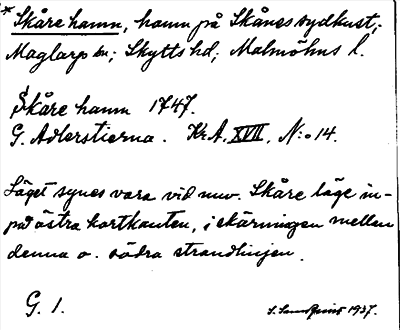 * Skåre hamn, hamn på Skånes sydkust;
Maglarp sn; Skytts hd; Malmöhus l.
Skåre hamn 1747.
G. Adlerstierna. Kr.A. XVII, N:o 14.
Läget synes vara vid nuv. Skåre läge in-
på östra kartkanten, i skärningen mellan
denna o. södra strandlinjen.
G. 1.
1937.